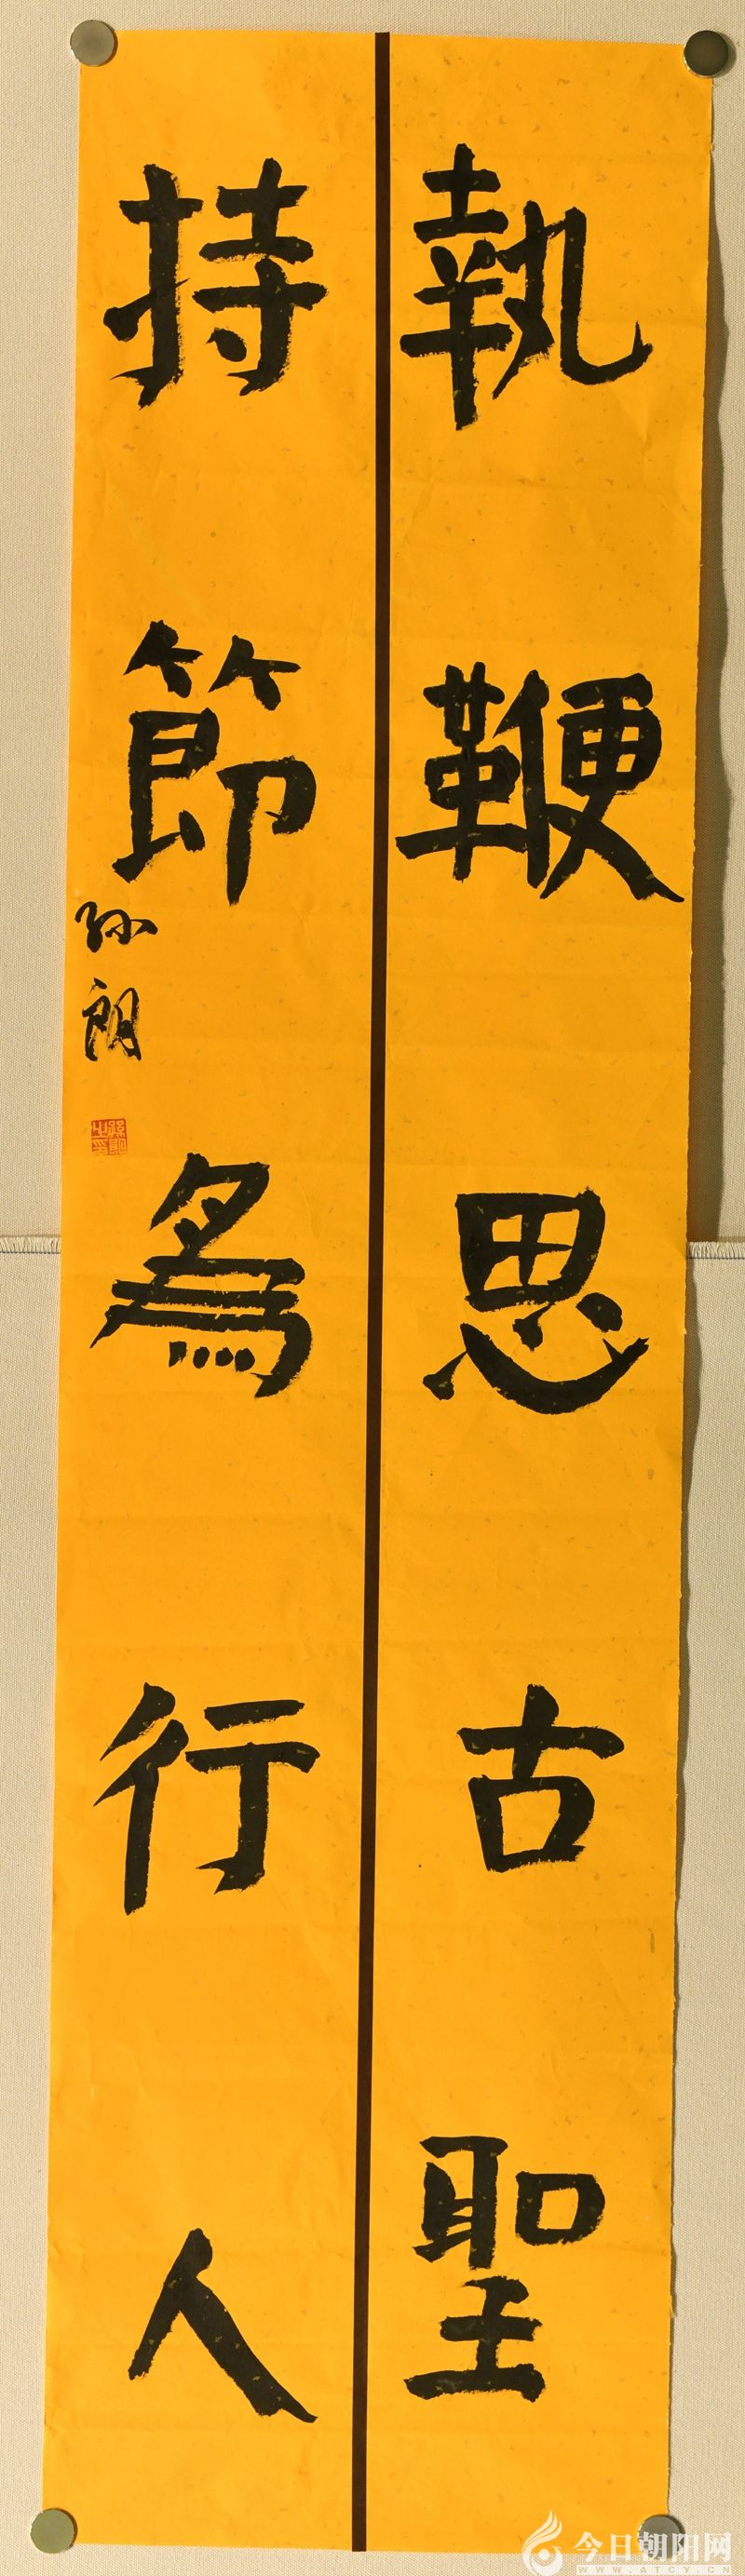 執鞭思古聖
持節爲行人
孙朗
今日朝阳网
WWW.ATCY.CN